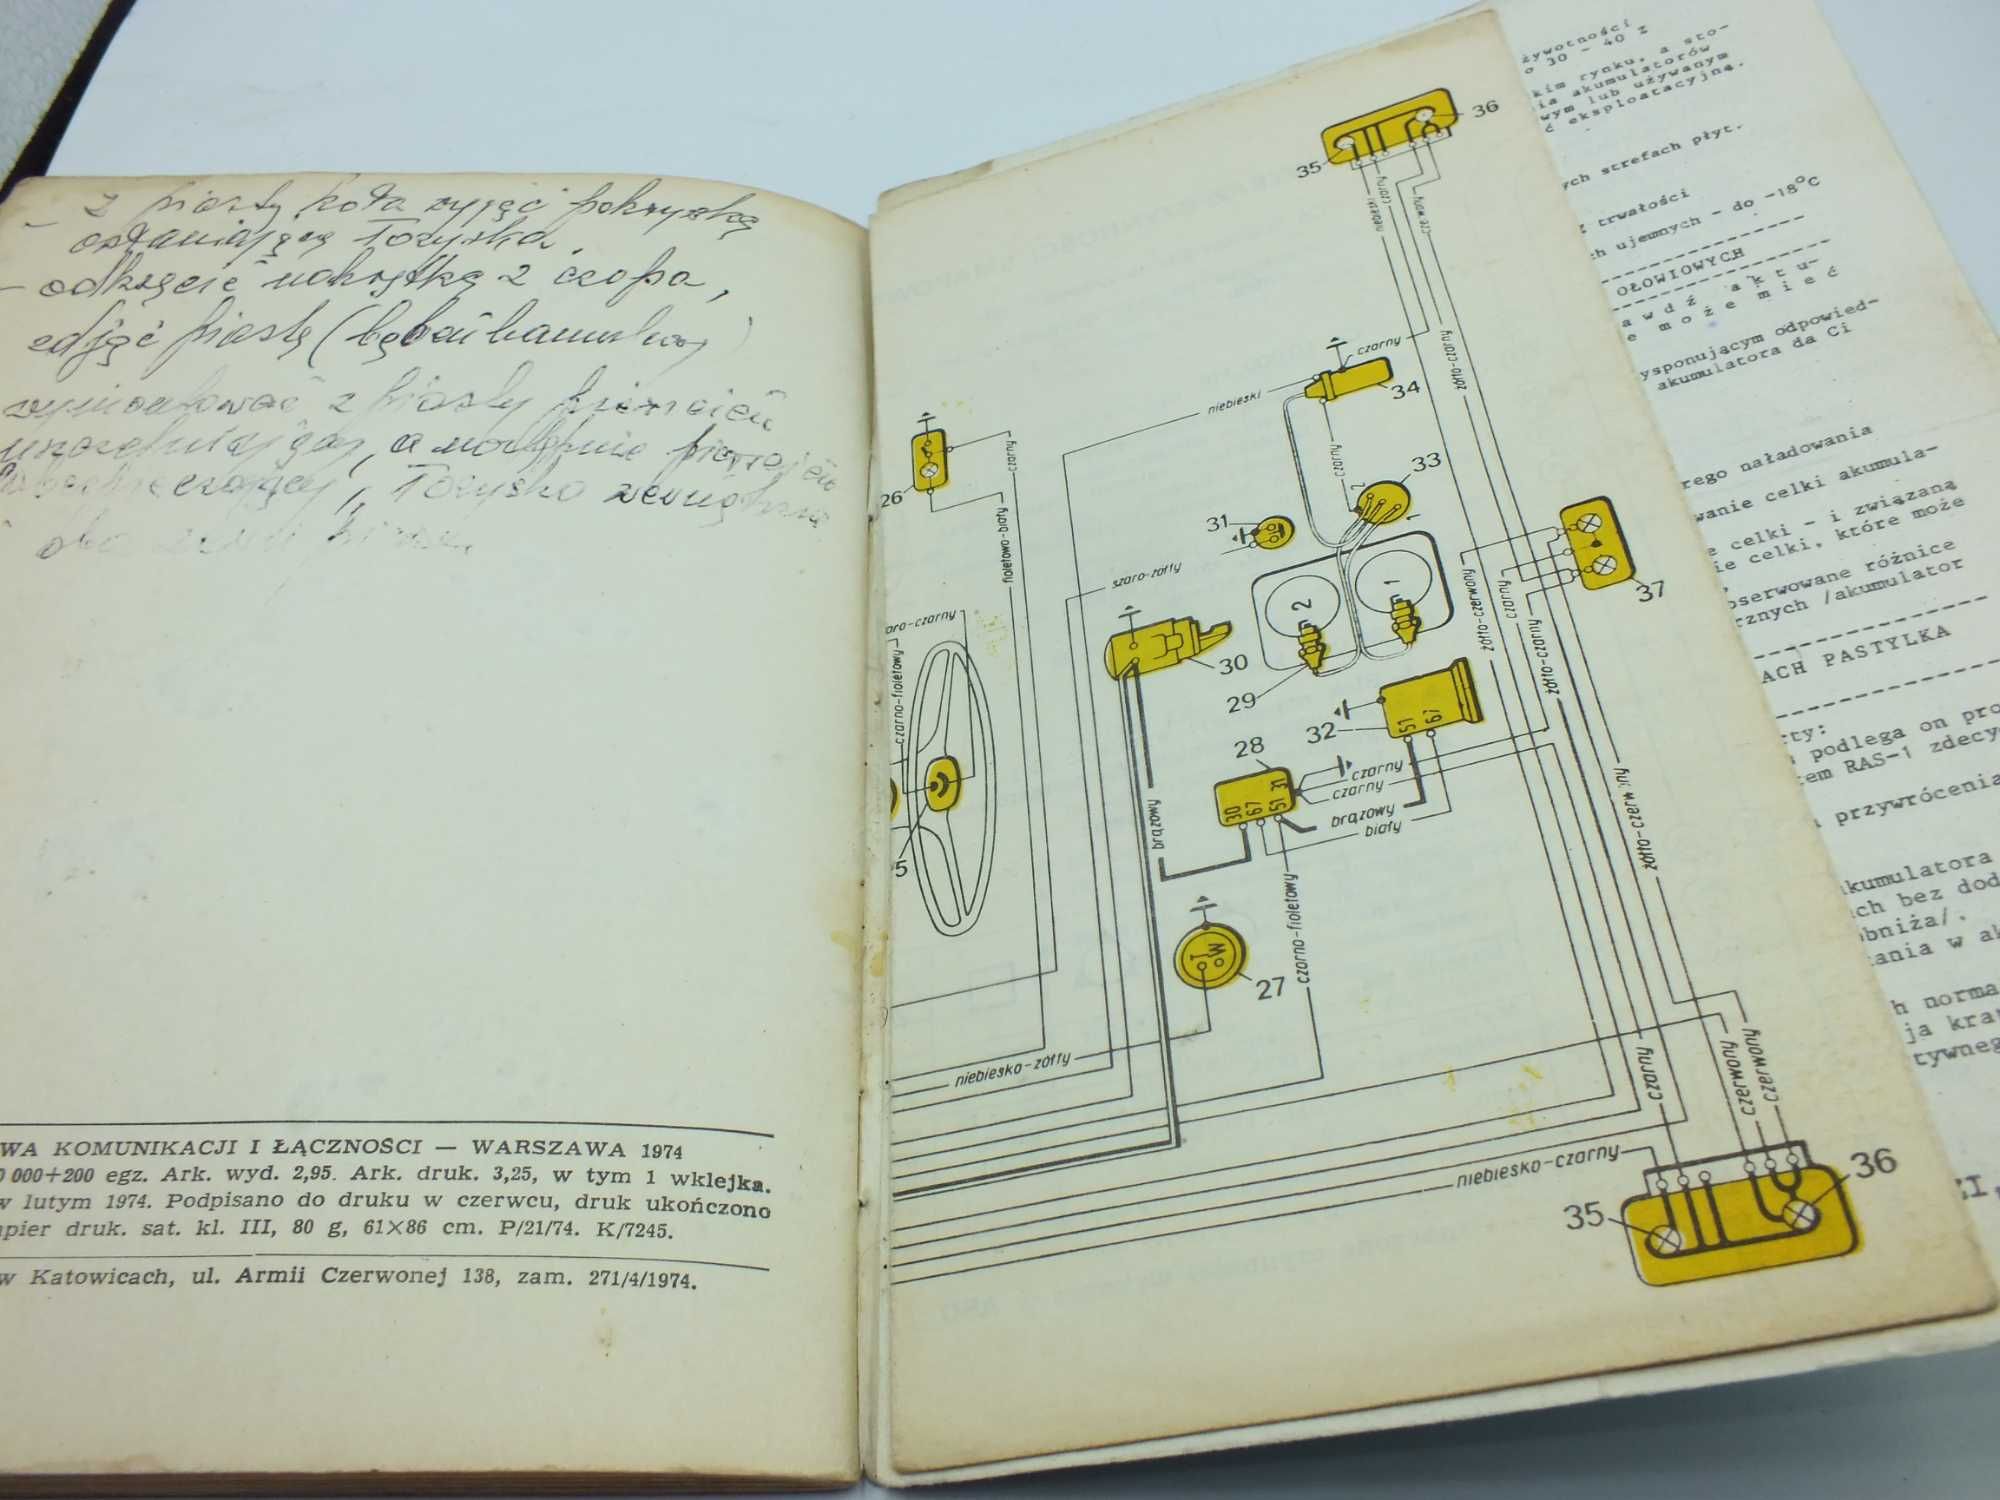 - z piasty koła zdjąć pokrywkę
osłaniającą łożyska
- odkręcić nakrętkę z czopa,
zdjąć piastę (bęben hamulcowy)
wymontować z piasty pierścień
uszczelniający, a następnie pierścień
łożysko
WA KOMUNIKACJI I ŁĄCZNOŚCI — WARSZAWA 1974
0 000+200 egz. Ark. wyd. 2,95. Ark. druk. 3,25, w tym 1 wklejka.
w lutym 1974. Podpisano do druku w czerwcu, druk ukończono
apier druk. sat. kl. III, 80 g, 61×86 cm. P/21/74. K/7245.
w Katowicach, ul. Armii Czerwonej 138, zam. 271/4/1974.
36
35
niebieski
czarny
czerwony
czarny
34
niebieski
czarny
żółto-czarny
czarny
33
2
1
26
czarny
fioletowo-biały
31
szaro-żółty
2
1
37
żółto-czerwony
żółto-czerwony
czarny
żółto-czarny
aro-czarny
czarno-fioletowy
30
29
32
51
67
28
30
67
51
31
czarny
czarny
brązowy
biały
brązowy
5
czarno-fioletowy
T
W
27
żółto-czerwony
niebiesko-żółty
czarny
czerwony
czerwony
niebiesko-czarny
35
36
żywotności
o 30 - 40 z
kim rynku, a sto-
ia akumulatorów
wym lub używanym
ć eksploatacyjną.
ych strefach płyt.
z trwałości
ch ujemnych - do -18°C
OŁOWIOWYCH
a w d ź  a k t u-
e  m o ż e  m i e ć
ysponującym odpowied-
akumulatora da Ci
rego naładowania
wanie celki akumula-
e celki - i związaną
ie celki, które może
oserwowane różnice
rznych /akumulator
ACH PASTYLKA
rty:
podlega on pro
tem RAS-1 zdecy
przywrócenia
akumulatora
ch bez dod
obniża/.
tania w ak
h norma
ja kra
tywneg
ZI,